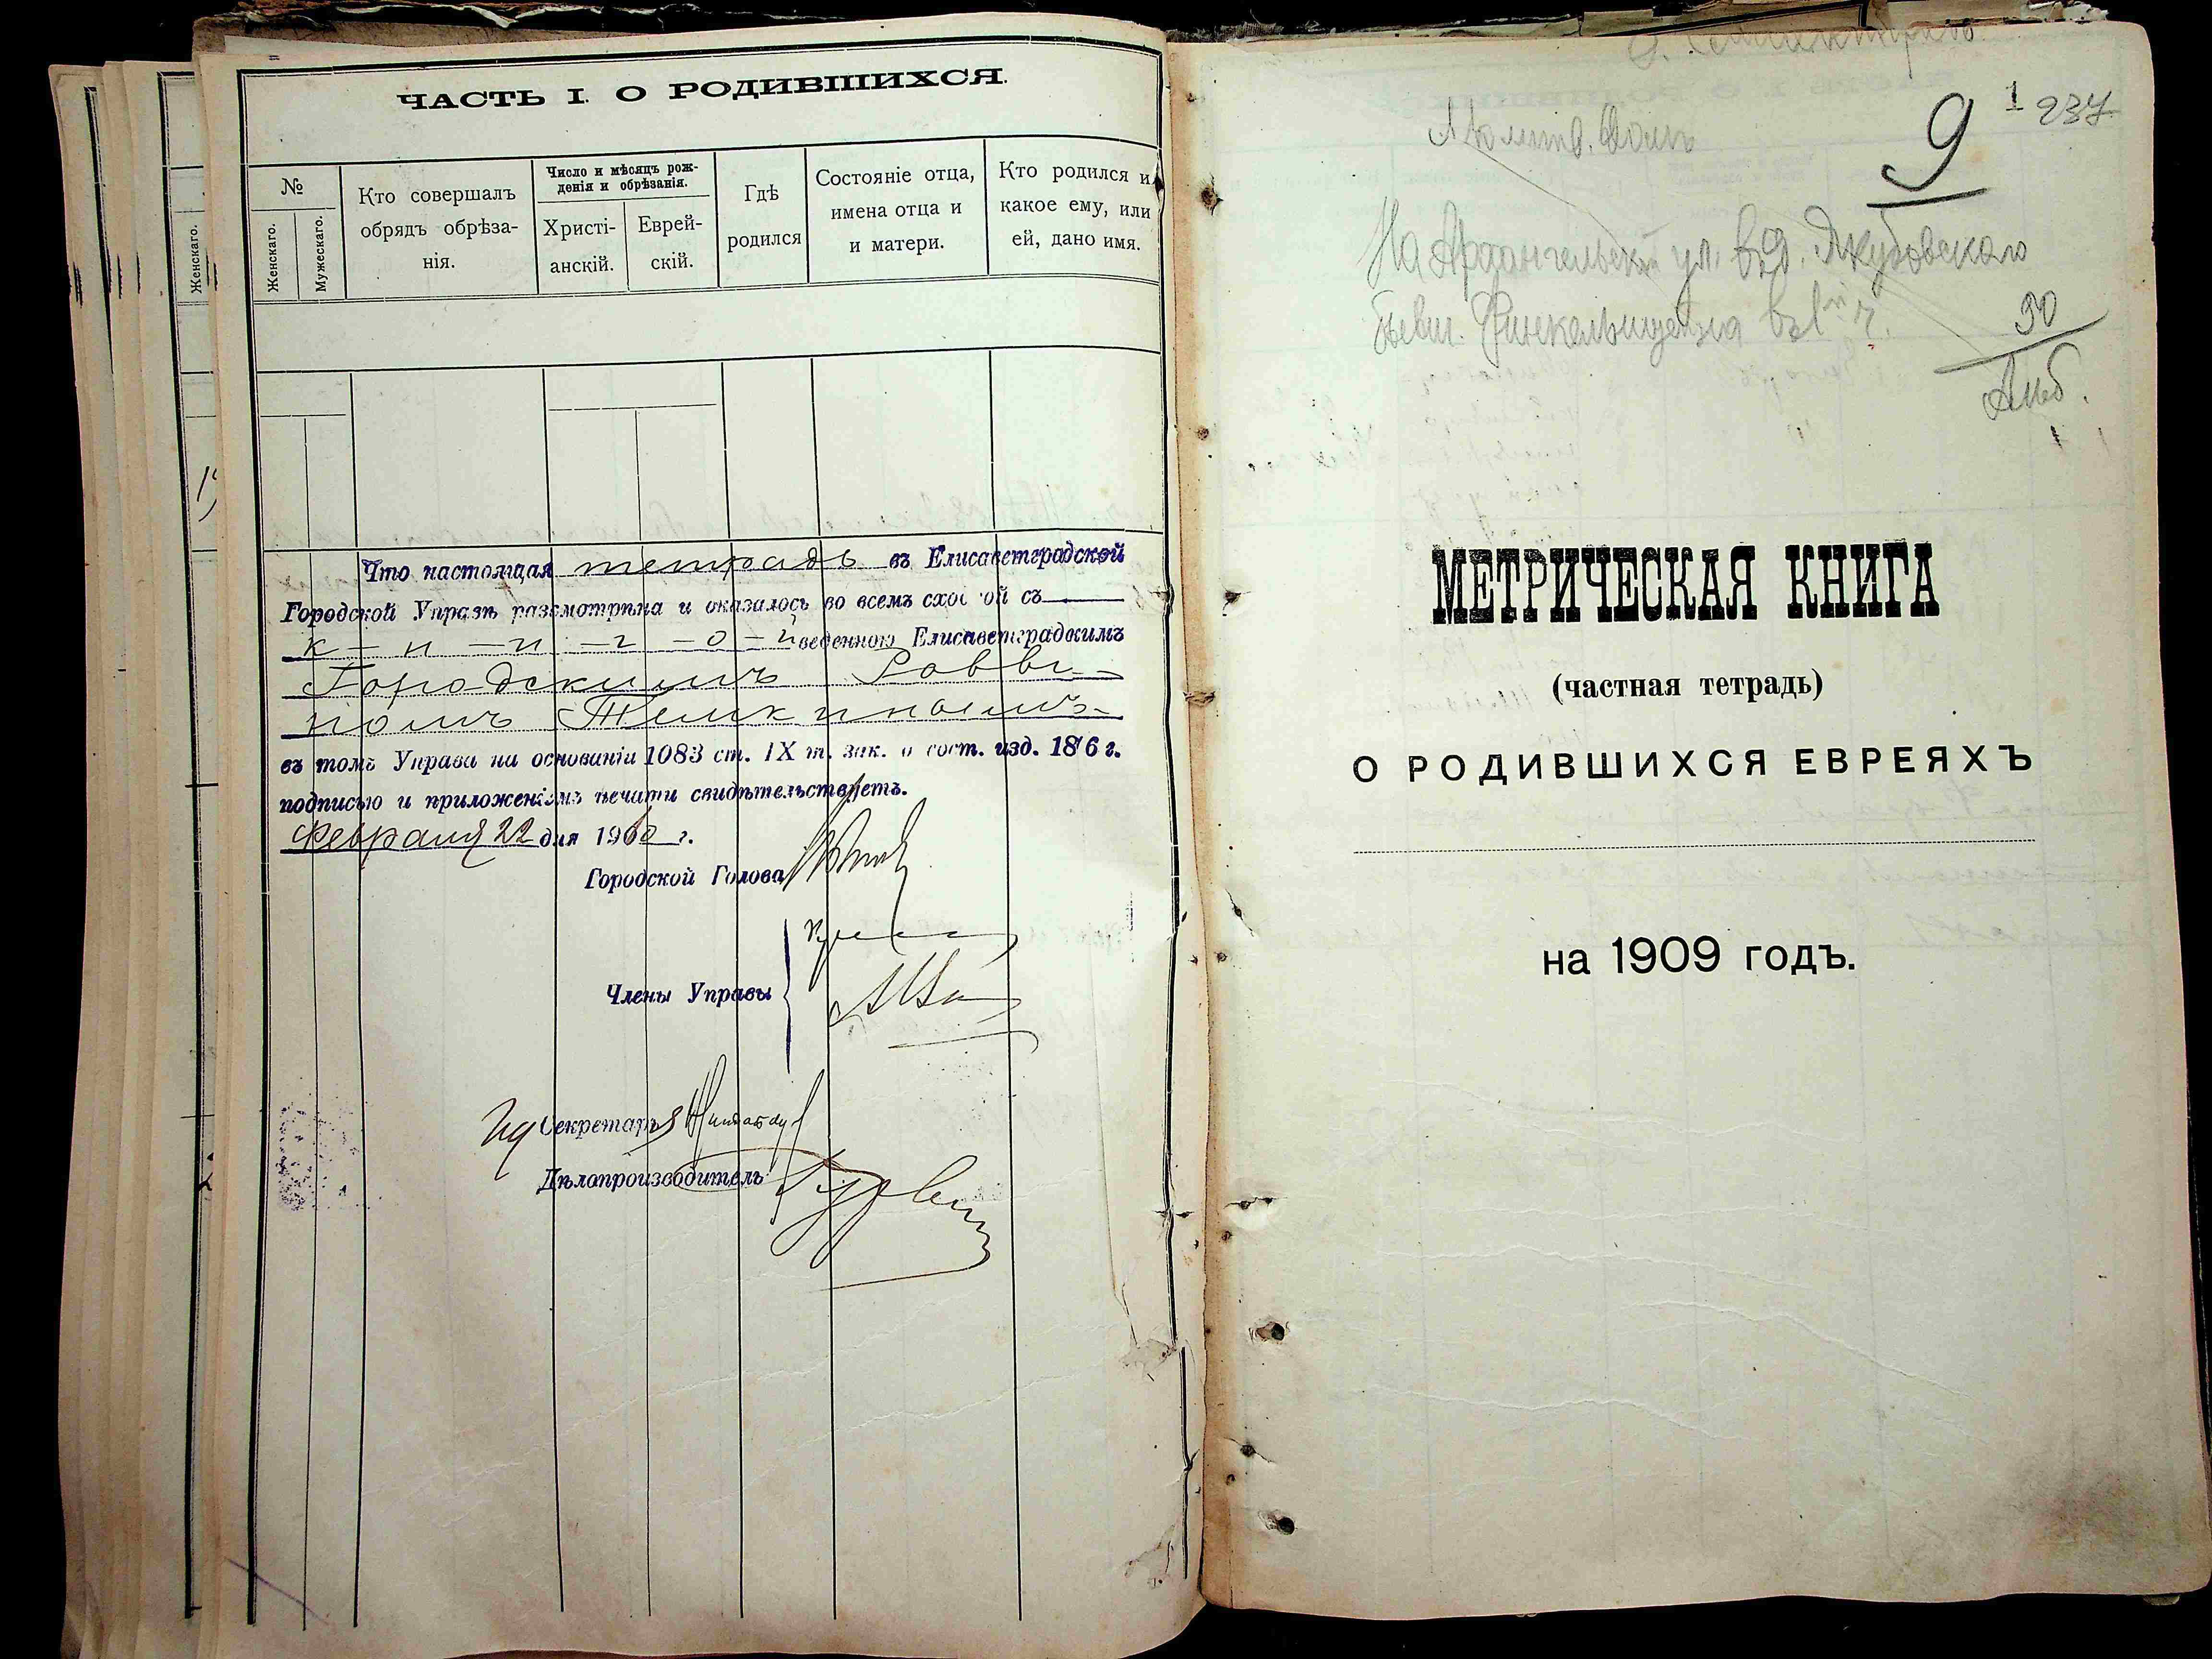 ЧАСТЬ I. О РОДИВШИХСЯ.
№
Женскаго.
Мужескаго.
Кто совершалъ
обрядъ обрѣза-
нія.
Число и мѣсяцъ рож-
денія и обрѣзанія.
Христі-
анскій.
Еврей-
скій.
Гдѣ
родился
Состояніе отца,
имена отца и
и матери.
Кто родился и
какое ему, или
ей, дано имя.
Женскаго.
Что настоящая тетрадь въ Елисаветградской
Городской Управѣ разсмотрѣна и оказалось во всемъ сход ой съ
к-н-и-г-о-й веденною Елисаветградскимъ
Городскимъ Равви-
номъ Темкинымъ-
въ томъ Управа на основаніи 1083 ст. IX т. зак. о сост. изд. 18 6 г.
подписью и приложеніемъ печати свидѣтельствуетъ.
Февраля 22 дня 1910 г.
Городской Голова
Члены Управы
Ид Секретаря
Дѣлопроизводитель
1 237
9
На Архангельск ул. въ д. Якубовскаго
бывш. Финкельштейна въ 1й ч.
30
МЕТРИЧЕСКАЯ КНИГА
(частная тетрадь)
О РОДИВШИХСЯ ЕВРЕЯХЪ
на 1909 годъ.